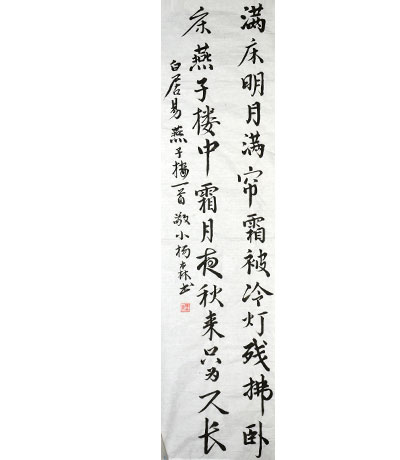 满床明月满帘霜被冷灯残拂卧
床燕子楼中霜月夜秋来只为一人长
白居易燕子楼一首